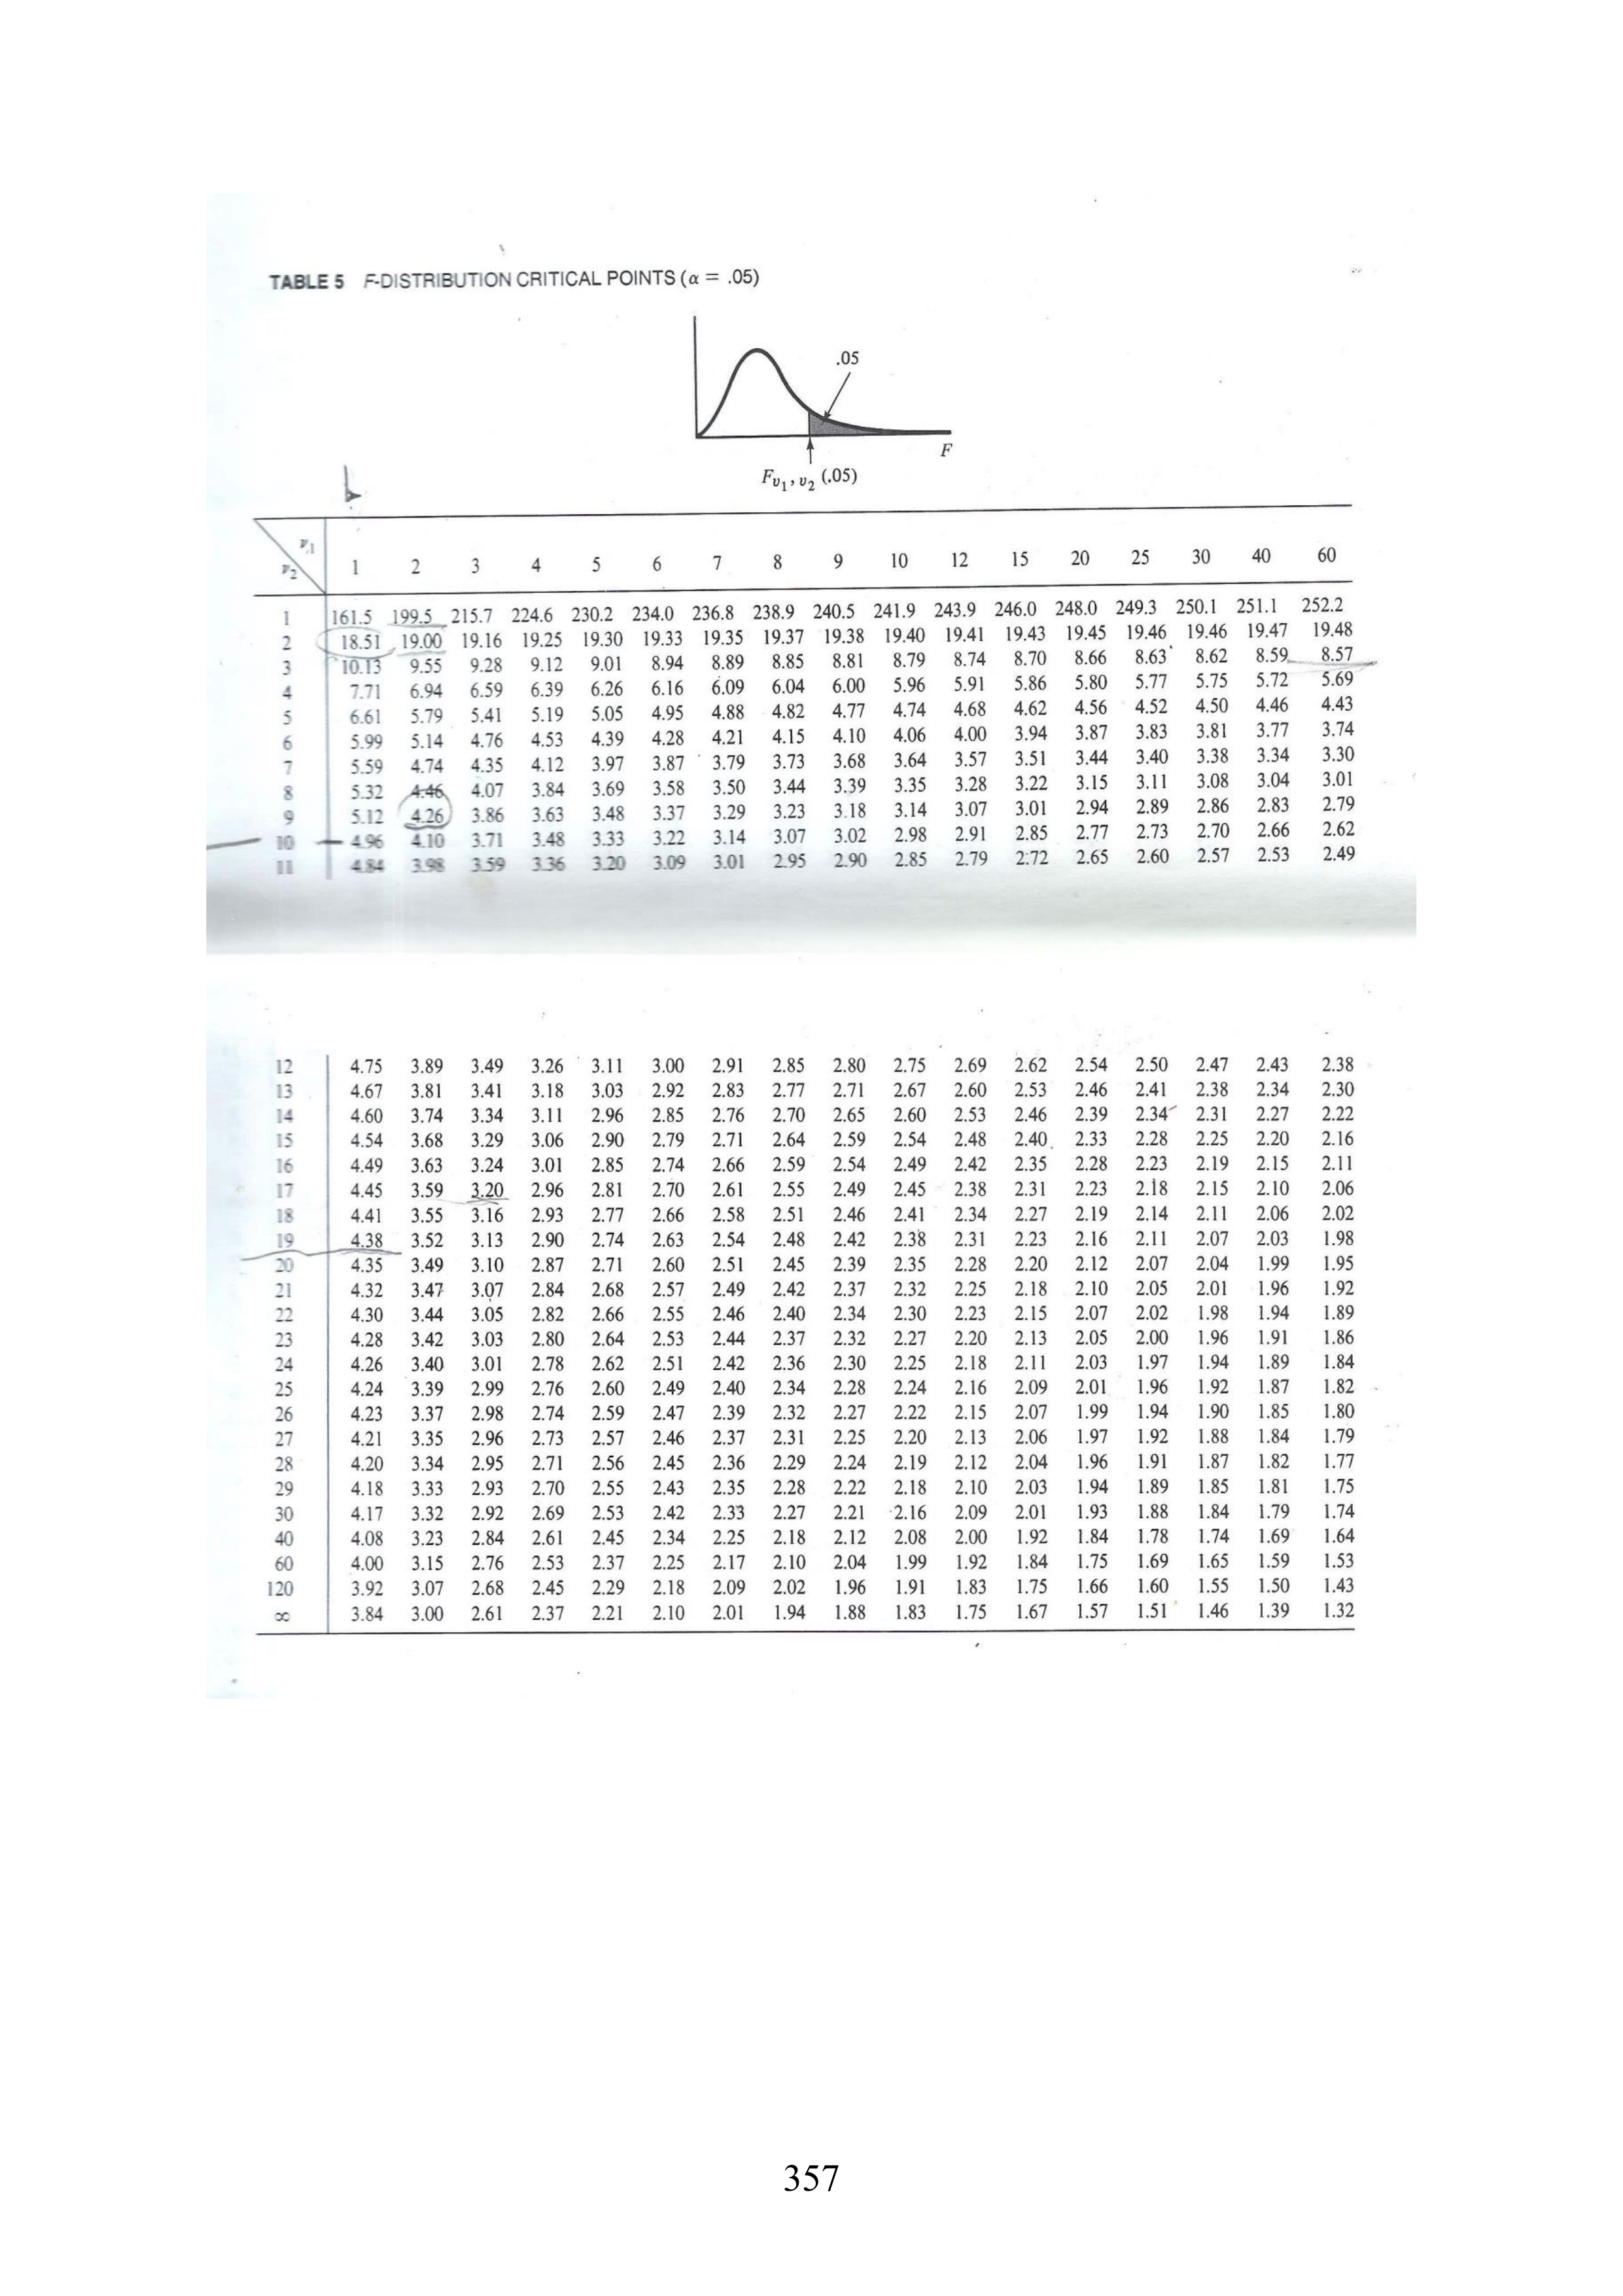 TABLE 5 F-DISTRIBUTION CRITICAL POINTS (α = .05)
.05
F
Fυ1, υ2 (.05)
ν1
ν2 1 2 3 4 5 6 7 8 9 10 12 15 20 25 30 40 60
1 161.5 199.5 215.7 224.6 230.2 234.0 236.8 238.9 240.5 241.9 243.9 246.0 248.0 249.3 250.1 251.1 252.2
2 18.51 19.00 19.16 19.25 19.30 19.33 19.35 19.37 19.38 19.40 19.41 19.43 19.45 19.46 19.46 19.47 19.48
3 10.13 9.55 9.28 9.12 9.01 8.94 8.89 8.85 8.81 8.79 8.74 8.70 8.66 8.63 8.62 8.59 8.57
4 7.71 6.94 6.59 6.39 6.26 6.16 6.09 6.04 6.00 5.96 5.91 5.86 5.80 5.77 5.75 5.72 5.69
5 6.61 5.79 5.41 5.19 5.05 4.95 4.88 4.82 4.77 4.74 4.68 4.62 4.56 4.52 4.50 4.46 4.43
6 5.99 5.14 4.76 4.53 4.39 4.28 4.21 4.15 4.10 4.06 4.00 3.94 3.87 3.83 3.81 3.77 3.74
7 5.59 4.74 4.35 4.12 3.97 3.87 3.79 3.73 3.68 3.64 3.57 3.51 3.44 3.40 3.38 3.34 3.30
8 5.32 4.46 4.07 3.84 3.69 3.58 3.50 3.44 3.39 3.35 3.28 3.22 3.15 3.11 3.08 3.04 3.01
9 5.12 4.26 3.86 3.63 3.48 3.37 3.29 3.23 3.18 3.14 3.07 3.01 2.94 2.89 2.86 2.83 2.79
10 4.96 4.10 3.71 3.48 3.33 3.22 3.14 3.07 3.02 2.98 2.91 2.85 2.77 2.73 2.70 2.66 2.62
11 4.84 3.98 3.59 3.36 3.20 3.09 3.01 2.95 2.90 2.85 2.79 2.72 2.65 2.60 2.57 2.53 2.49
12 4.75 3.89 3.49 3.26 3.11 3.00 2.91 2.85 2.80 2.75 2.69 2.62 2.54 2.50 2.47 2.43 2.38
13 4.67 3.81 3.41 3.18 3.03 2.92 2.83 2.77 2.71 2.67 2.60 2.53 2.46 2.41 2.38 2.34 2.30
14 4.60 3.74 3.34 3.11 2.96 2.85 2.76 2.70 2.65 2.60 2.53 2.46 2.39 2.34 2.31 2.27 2.22
15 4.54 3.68 3.29 3.06 2.90 2.79 2.71 2.64 2.59 2.54 2.48 2.40 2.33 2.28 2.25 2.20 2.16
16 4.49 3.63 3.24 3.01 2.85 2.74 2.66 2.59 2.54 2.49 2.42 2.35 2.28 2.23 2.19 2.15 2.11
17 4.45 3.59 3.20 2.96 2.81 2.70 2.61 2.55 2.49 2.45 2.38 2.31 2.23 2.18 2.15 2.10 2.06
18 4.41 3.55 3.16 2.93 2.77 2.66 2.58 2.51 2.46 2.41 2.34 2.27 2.19 2.14 2.11 2.06 2.02
19 4.38 3.52 3.13 2.90 2.74 2.63 2.54 2.48 2.42 2.38 2.31 2.23 2.16 2.11 2.07 2.03 1.98
20 4.35 3.49 3.10 2.87 2.71 2.60 2.51 2.45 2.39 2.35 2.28 2.20 2.12 2.07 2.04 1.99 1.95
21 4.32 3.47 3.07 2.84 2.68 2.57 2.49 2.42 2.37 2.32 2.25 2.18 2.10 2.05 2.01 1.96 1.92
22 4.30 3.44 3.05 2.82 2.66 2.55 2.46 2.40 2.34 2.30 2.23 2.15 2.07 2.02 1.98 1.94 1.89
23 4.28 3.42 3.03 2.80 2.64 2.53 2.44 2.37 2.32 2.27 2.20 2.13 2.05 2.00 1.96 1.91 1.86
24 4.26 3.40 3.01 2.78 2.62 2.51 2.42 2.36 2.30 2.25 2.18 2.11 2.03 1.97 1.94 1.89 1.84
25 4.24 3.39 2.99 2.76 2.60 2.49 2.40 2.34 2.28 2.24 2.16 2.09 2.01 1.96 1.92 1.87 1.82
26 4.23 3.37 2.98 2.74 2.59 2.47 2.39 2.32 2.27 2.22 2.15 2.07 1.99 1.94 1.90 1.85 1.80
27 4.21 3.35 2.96 2.73 2.57 2.46 2.37 2.31 2.25 2.20 2.13 2.06 1.97 1.92 1.88 1.84 1.79
28 4.20 3.34 2.95 2.71 2.56 2.45 2.36 2.29 2.24 2.19 2.12 2.04 1.96 1.91 1.87 1.82 1.77
29 4.18 3.33 2.93 2.70 2.55 2.43 2.35 2.28 2.22 2.18 2.10 2.03 1.94 1.89 1.85 1.81 1.75
30 4.17 3.32 2.92 2.69 2.53 2.42 2.33 2.27 2.21 2.16 2.09 2.01 1.93 1.88 1.84 1.79 1.74
40 4.08 3.23 2.84 2.61 2.45 2.34 2.25 2.18 2.12 2.08 2.00 1.92 1.84 1.78 1.74 1.69 1.64
60 4.00 3.15 2.76 2.53 2.37 2.25 2.17 2.10 2.04 1.99 1.92 1.84 1.75 1.69 1.65 1.59 1.53
120 3.92 3.07 2.68 2.45 2.29 2.18 2.09 2.02 1.96 1.91 1.83 1.75 1.66 1.60 1.55 1.50 1.43
∞ 3.84 3.00 2.61 2.37 2.21 2.10 2.01 1.94 1.88 1.83 1.75 1.67 1.57 1.51 1.46 1.39 1.32
357